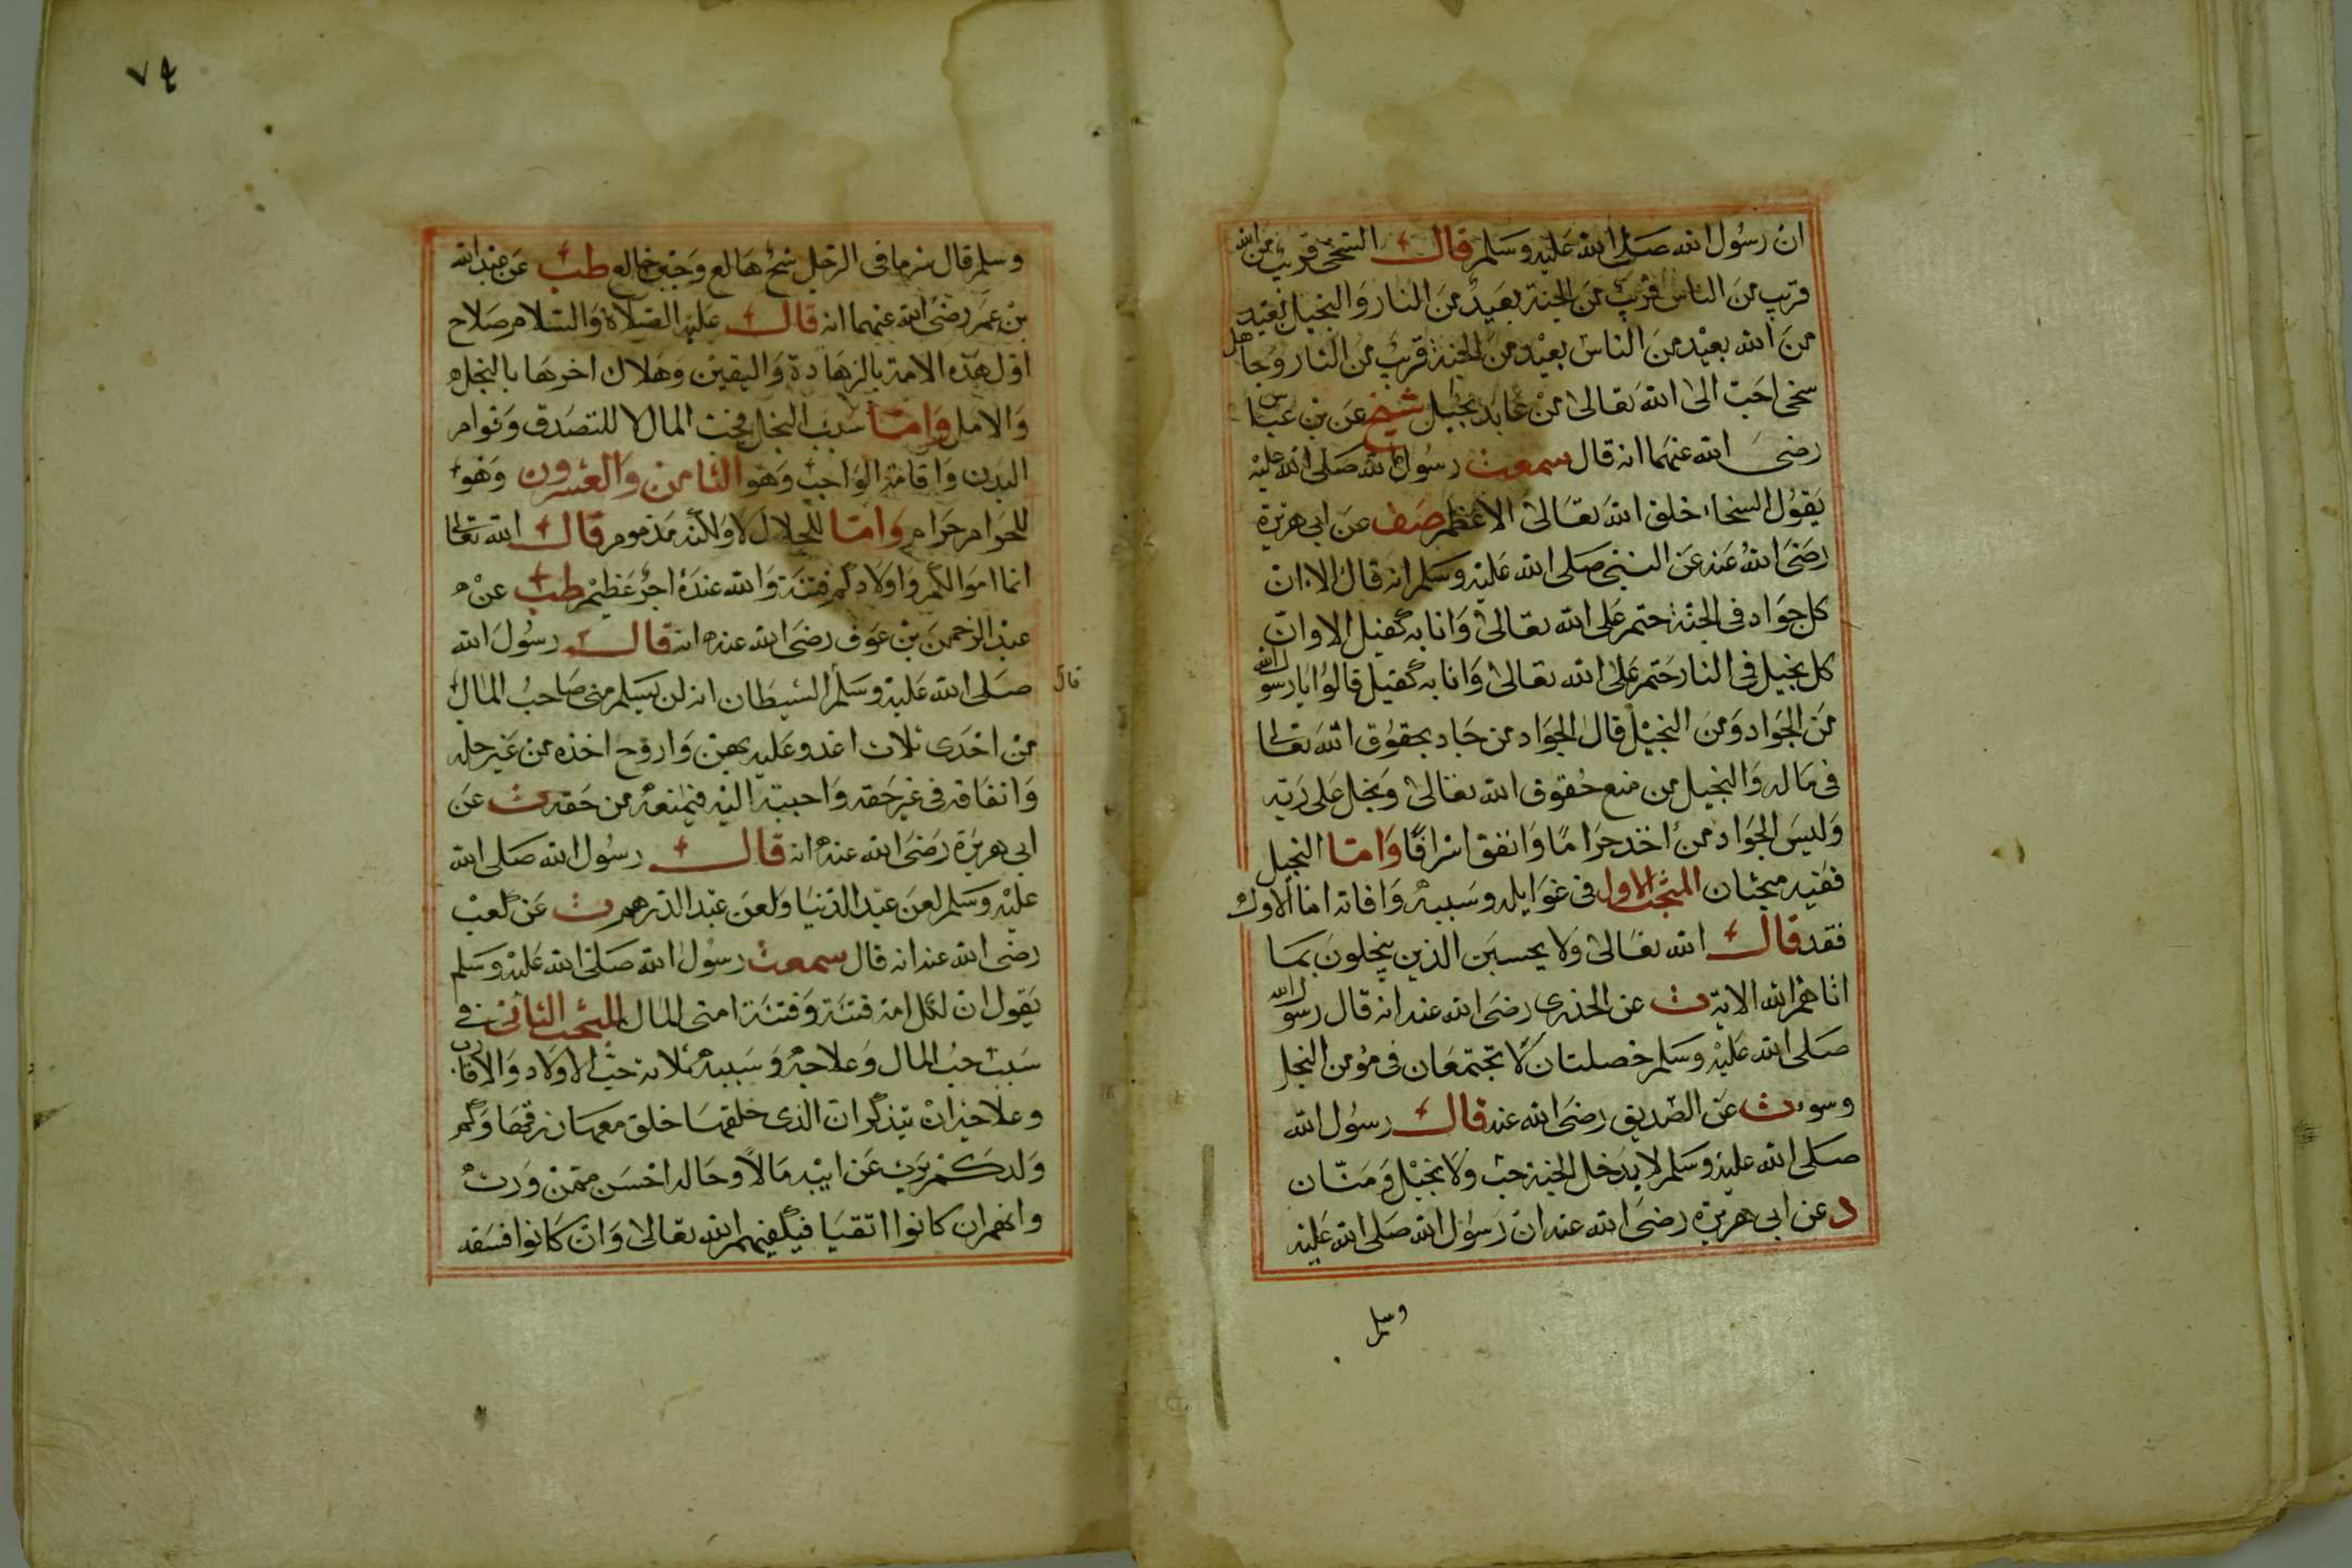 ان رسول الله صلى الله عليه وسلم قال السخى قريب من الله
قريب من الناس قريب من الجنة بعيد من النار والبخيل بعيد
من الله بعيد من الناس بعيد من الجنة قريب من النار وجاهل
سخى احب الى الله تعالى من عابد بخيل شيخ عن بن عباس
رضى الله عنهما انه قال سمعت رسول الله صلى الله عليه
يقول السخاء خلق الله تعالى الاعظم صف عن ابى هريرة
رضى الله عنه عن النبى صلى الله عليه وسلم انه قال الا ان
كل جواد فى الجنة حتم على الله تعالى وانا به كفيل الا وان
كل بخيل فى النار حتم على الله تعالى وانا به كفيل قالوا يا رسول الله
من الجواد ومن البخيل قال الجواد من جاد بحقوق الله تعالى
فى ماله والبخيل من منع حقوق الله تعالى وبخل على ربه
وليس الجواد من اخذ حراما وانفق اسرافا واما البخيل
ففيه مبحثان المبحث الاول فى غوايله وسببه وافاته اما الاول
فقد قال الله تعالى ولا يحسبن الذين يبخلون بما
اتاهم الله الاية ت عن الخدرى رضى الله عنه انه قال رسول الله
صلى الله عليه وسلم خصلتان لا تجتمعان فى مؤمن البخل
وسوء ت عن الصديق رضى الله عنه قال رسول الله
صلى الله عليه وسلم لا يدخل الجنة خب ولا بخيل ومنان
د عن ابى هريرة رضى الله عنه ان رسول الله صلى الله عليه
وسلم
٧٤
وسلم قال شر ما فى الرجل شح هالع وجبن خالع طب عن عبد الله
بن عمر رضى الله عنهما انه قال عليه الصلاة والسلام صلاح
اول هذه الامة بالزهادة واليقين وهلاك اخرها بالبخل
والامل واما سبب البخل فحب المال لا للتصدق وقوام
البدن واقامة الواجب وهو الثامن والعشرون وهو
للحرام حرام واما للحلال لا ولكنه مذموم قال الله تعالى
انما اموالكم واولادكم فتنة والله عنده اجر عظيم طب عن
عبد الرحمن بن عوف رضى الله عنه انه قال رسول الله
صلى الله عليه وسلم الشيطان انه لن يسلم منى صاحب المال
قال
من احدى ثلاث اغدو عليه بهن واروح اخذه من غير حله
وانفاقه فى غير حقه واحببه اليه فيمنعه من حقه ت عن
ابى هريرة رضى الله عنه انه قال رسول الله صلى الله
عليه وسلم لعن عبد الدنيا ولعن عبد الدرهم ت عن كعب
رضى الله عنه انه قال سمعت رسول الله صلى الله عليه وسلم
يقول ان لكل امة فتنة وفتنة امتى المال المبحث الثانى فى
سبب حب المال وعلاجه وسببه ثلاثة حب الاولاد والاقارب
وعلاجه ان يتذكر ان الذى خلقهما خلق معهما رزقهما وكم
ولد كم يرث عن ابيه مالا وحاله احسن ممن ورث
وانهم ان كانوا اتقيا فيكفيهم الله تعالى وان كانوا فسقه